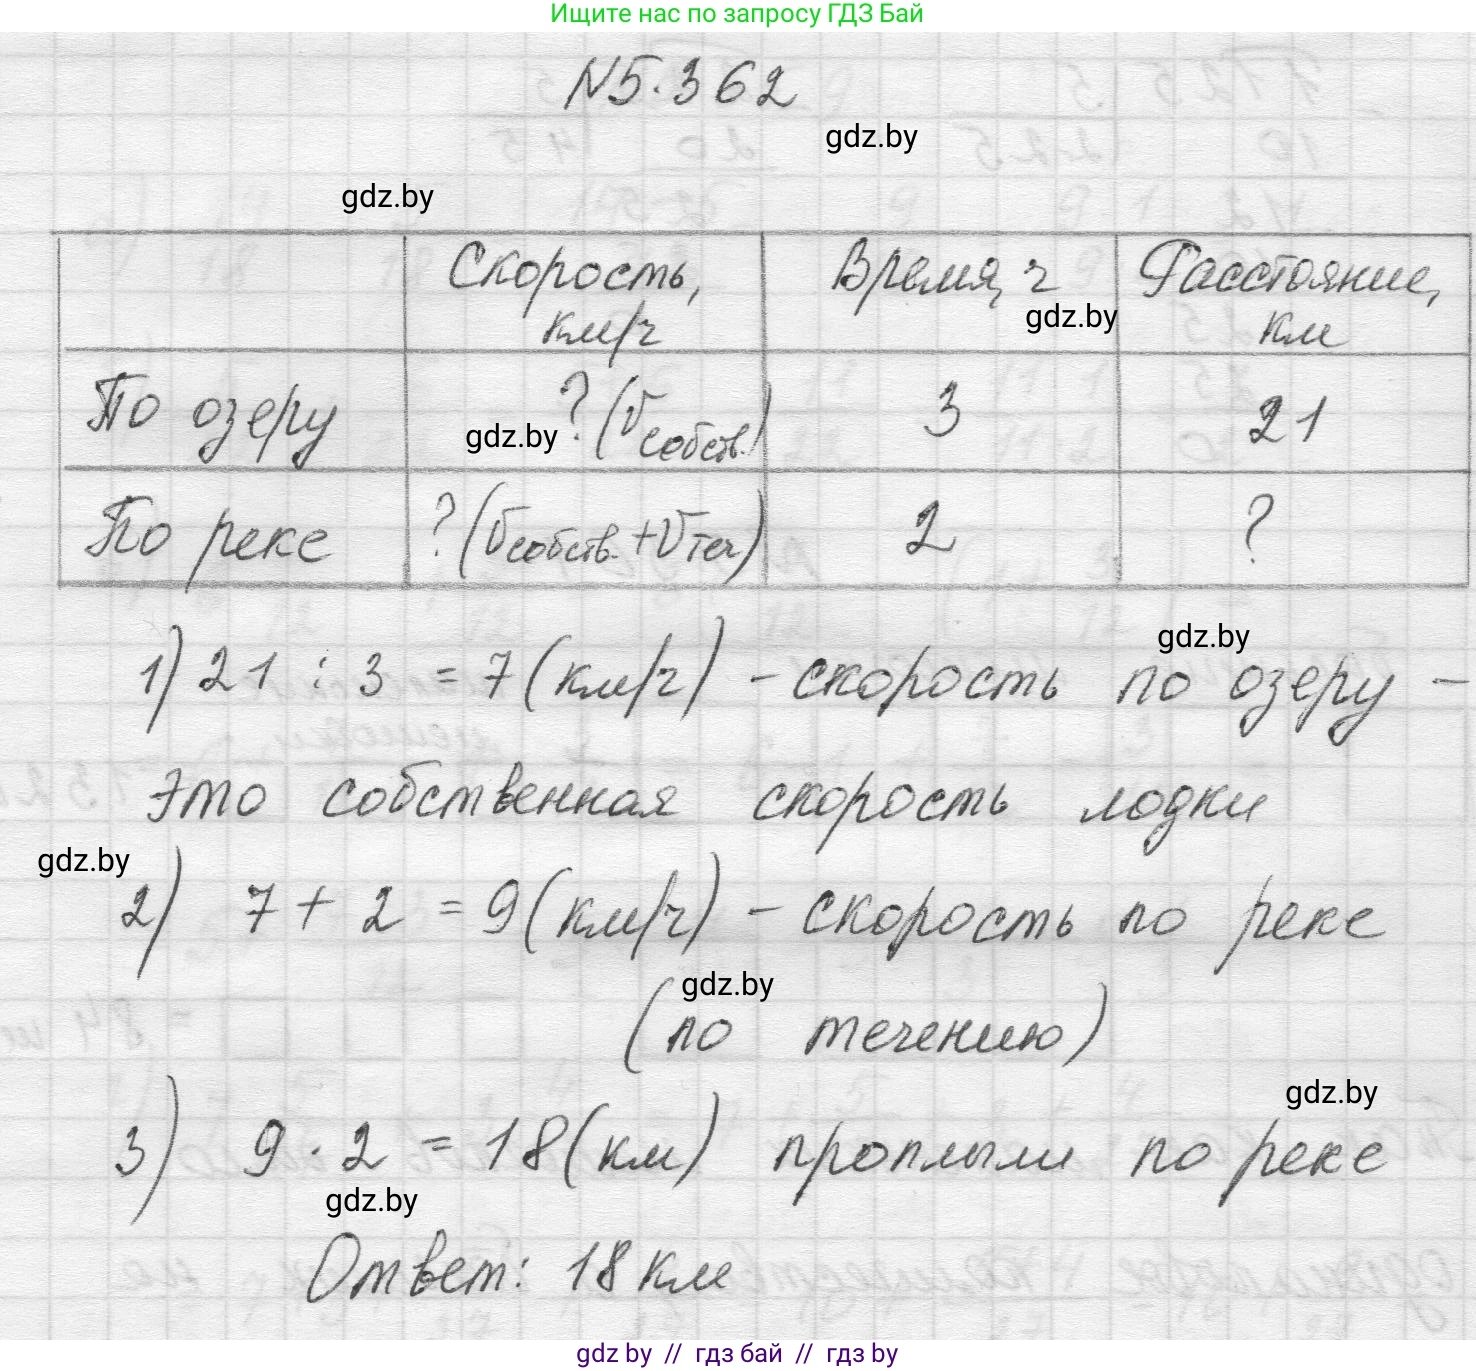 Ищите нас по запросу ГДЗ Бай
N5.362
gdz.by
gdz.by
Скорость, км/ч Время, ч Расстояние, км
gdz.by
По озеру ? (Vсобств.) 3 21
gdz.by
По реке ? (Vсобств. + Vтеч) 2 ?
gdz.by
1) 21 : 3 = 7 (км/ч) - скорость по озеру -
это собственная скорость лодки
gdz.by
2) 7 + 2 = 9 (км/ч) - скорость по реке
gdz.by
(по течению)
gdz.by
3) 9 · 2 = 18 (км) проплыли по реке
gdz.by
Ответ: 18 км
gdz by // гдз бай // гдз by